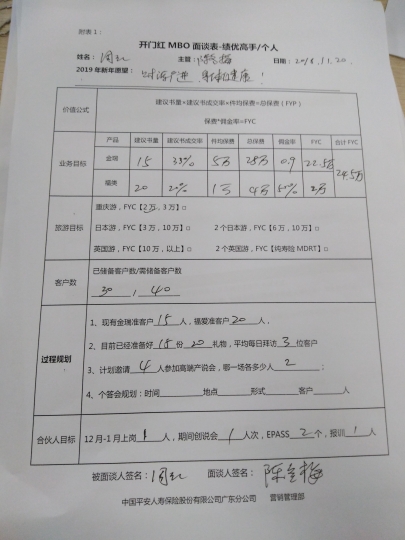 附表1：
开门红MBO面谈表-绩优高手/个人
姓名： 主管： 日期：2018.11.20.
2019年新年愿望： 身体健康！
价值公式 建议书量×建议书成交率×件均保费=总保费（FYP）
保费*佣金率=FYC
业务目标 产品 建议书量 建议书成交率 件均保费 总保费 佣金率 FYC 合计FYC
金瑞 15 33% 5万 25万 0.9 22.5万 24.5万
福类 20 20% 1万 4万 50% 2万
旅游目标 重庆游，FYC【2万，3万】□
日本游，FYC【3万，10万】□ 2个日本游，FYC【6万，10万】□
英国游，FYC【10万，以上】□ 2个英国游，FYC【纯寿险MDRT】□
客户数 已储备客户数/需储备客户数
30 / 40
过程规划 1、现有金瑞准客户15人，福爱准客户20人，
2、目前已经准备好18份20礼物，平均每日拜访3位客户
3、计划邀请4人参加高端产说会，哪一场各多少人2；
4、个答会规划：时间 地点 形式 客户 人
合伙人目标 12月-1月上岗1人，期间创说会1人次，EPASS 2个，报训1人
被面谈人签名： 面谈人签名：陈金梅
中国平安人寿保险股份有限公司广东分公司 营销管理部